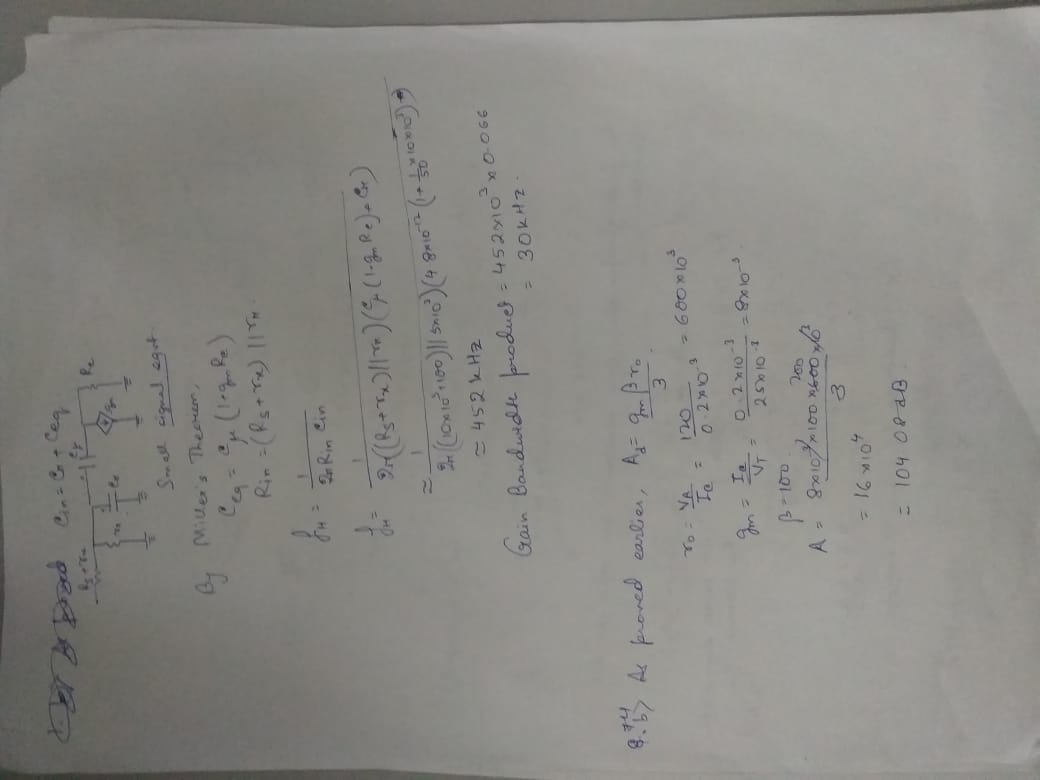 Cin = Cπ + Ceq
Rs+rx
Cμ
Rc
rπ
Cπ
gm
Small signal eqvt.
By Miller's Theorem,
Ceq = Cμ (1+gmRc)
Rin = (Rs+rx) || rπ.
fH = 1 / 2πRin Cin
fH = 1 / 2π((Rs+rx)||rπ)(Cμ(1+gmRc)+Cπ)
≈ 1 / 2π((10×10³+100)||5×10³)(4.8×10⁻¹² (1+1/50×10×10³))
≈ 452 kHz
Gain Bandwidth product = 452×10³ × 0.066
= 30kHz.
9.74 b) As proved earlier, Ad = gmβro / 3.
ro = VA/IC = 120 / 0.2×10⁻³ = 600×10³
gm = IC/VT = 0.2×10⁻³ / 25×10⁻³ = 8×10⁻³.
β=100.
200
A = 8×10⁻³×100×600×10³ / 3
= 16×10⁴
= 104.08dB